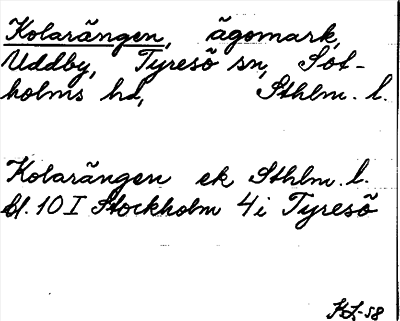 Kolarängen, ägomark,
Uddby, Tyresö sn, Sot-
holms hd, Sthlm. l.
Kolarängen ek Sthlm. l.
bl. 10 I Stockholm 4i Tyresö